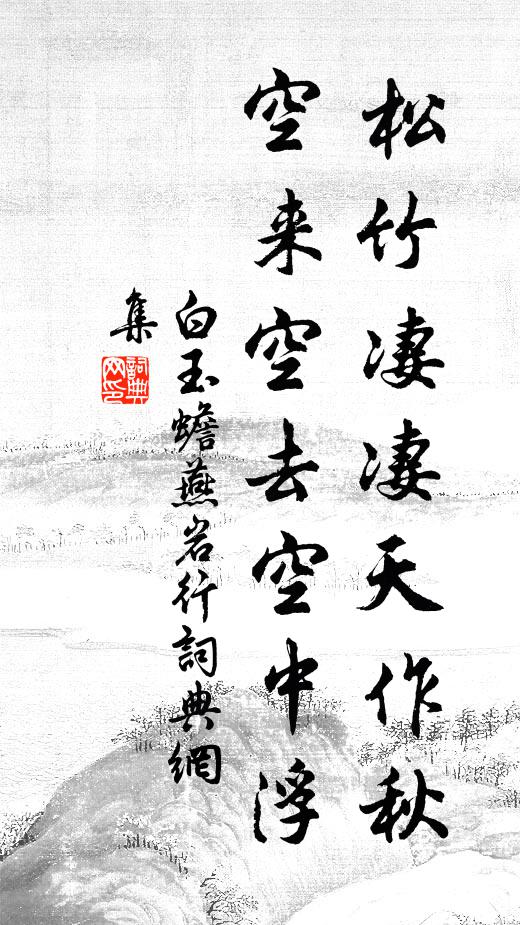 松竹凄凄天作秋
空来空去空中浮
白玉蟾燕岩行詞典網
集
詞典
网印